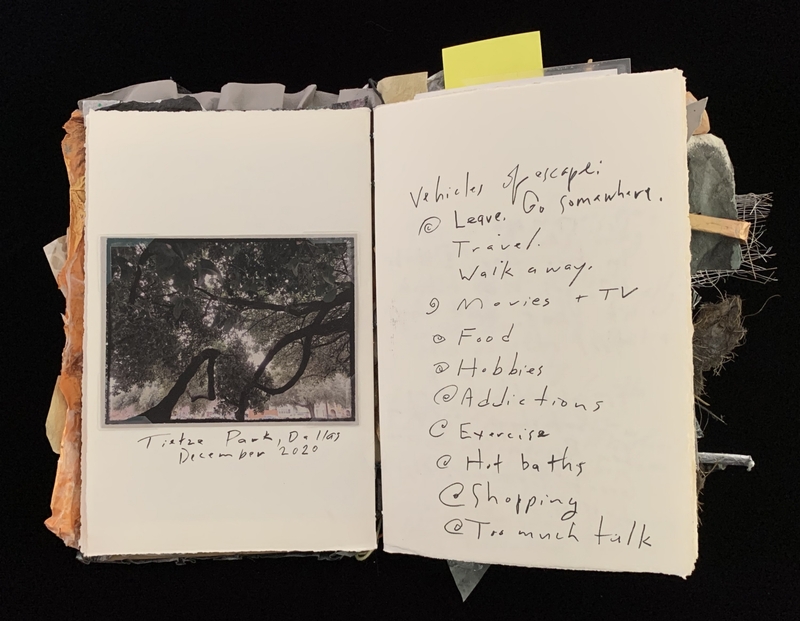 Tietze Park, Dallas
December 2020
Vehicles of escape:
@ Leave. Go somewhere.
Travel.
Walk away.
@ Movies + TV
@ Food
@ Hobbies
@ Addictions
@ Exercise
@ Hot baths
@ Shopping
@ Too much talk